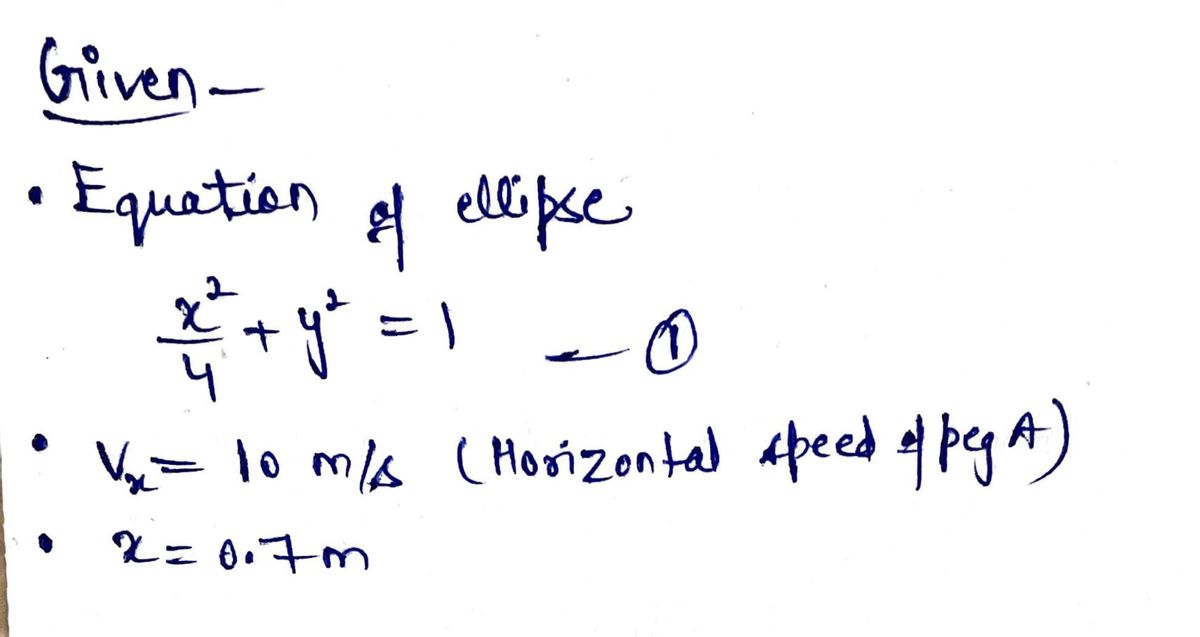 Given -
• Equation of ellipse
x²/4 + y² = 1 — ①
• Vx = 10 m/s (Horizontal speed of peg A)
• x = 0.7m